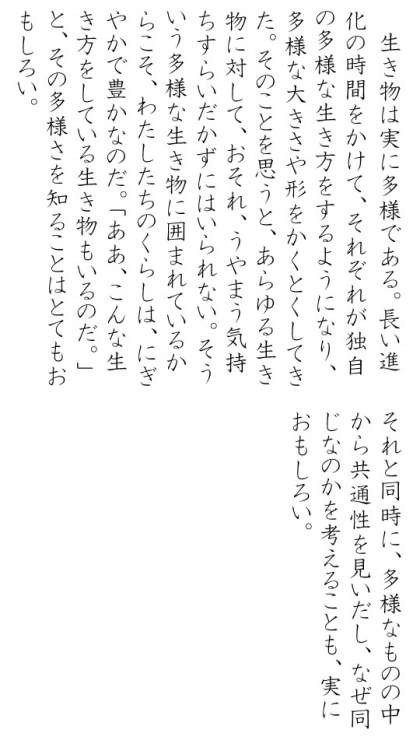 生き物は実に多様である。長い進
化の時間をかけて、それぞれが独自
の多様な生き方をするようになり、
多様な大きさや形をかくとくしてき
た。そのことを思うと、あらゆる生き
物に対して、おそれ、うやまう気持
ちすらいだかずにはいられない。そう
いう多様な生き物に囲まれているか
らこそ、わたしたちのくらしは、にぎ
やかで豊かなのだ。「ああ、こんな生
き方をしている生き物もいるのだ。」
と、その多様さを知ることはとてもお
もしろい。
それと同時に、多様なものの中
から共通性を見いだし、なぜ同
じなのかを考えることも、実に
おもしろい。